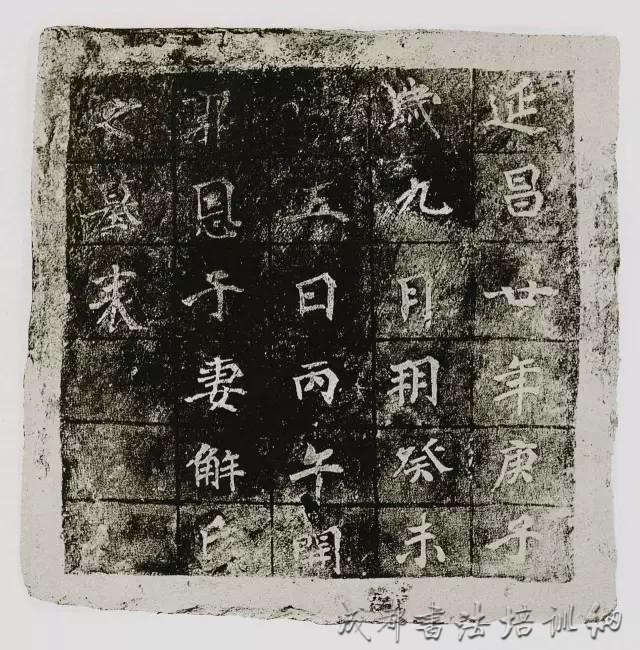 延昌廿年庚子
歲九月朔癸未
五日丙午開
郭恩子妻解氏
之墓表
成都書法培训网